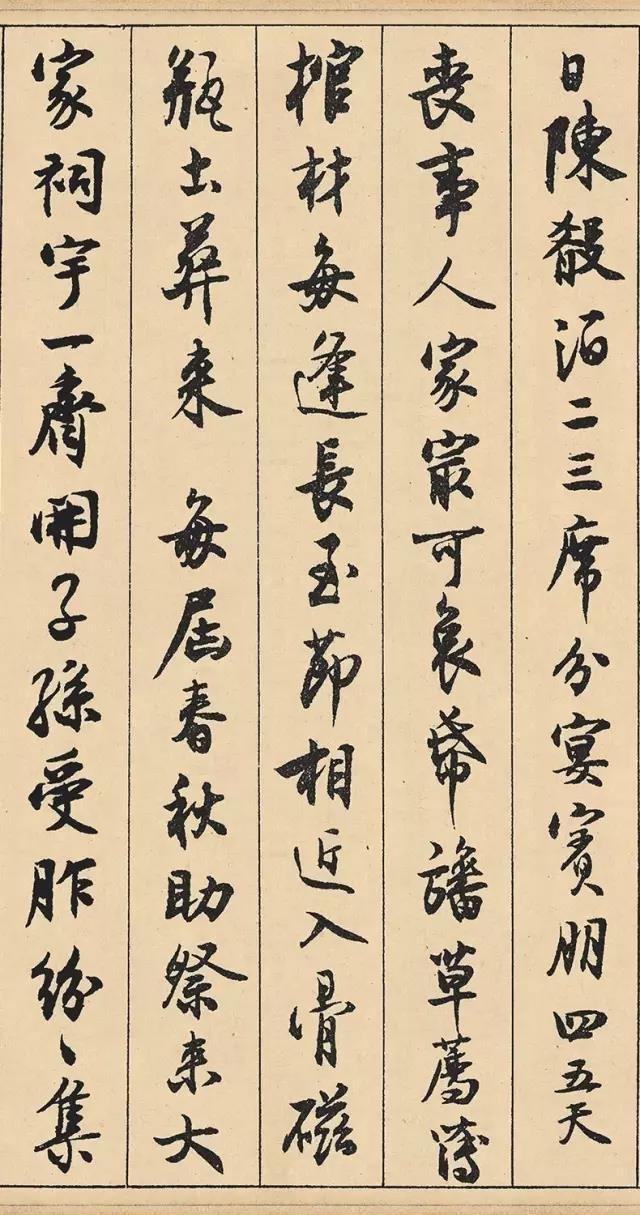 日陳殽酒二三席分宴賓朋四五天
喪事人家冣可哀幕旛草薦薄
棺材每逢長至節相近入骨磁
瓶土葬来 每届春秋助祭来大
家祠宇一齊開子孫受胙紛〻集